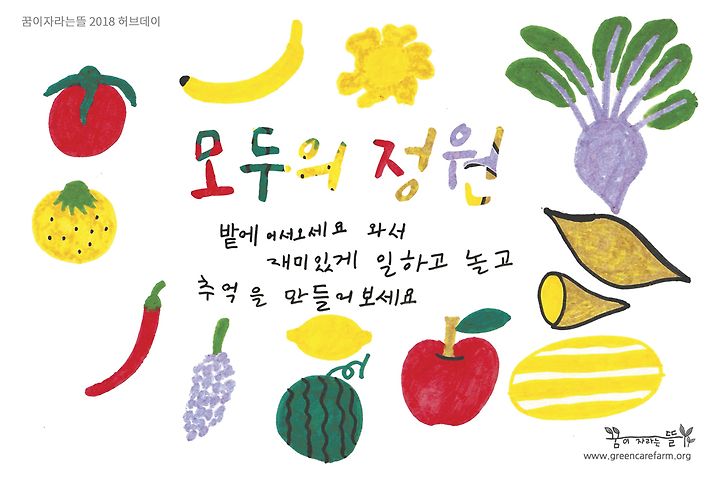 꿈이자라는뜰 2018 허브데이
모두의 정원
밭에 어서오세요 와서
재미있게 일하고 놀고
추억을 만들어보세요
꿈이 자라는 뜰
www.greencarefarm.org